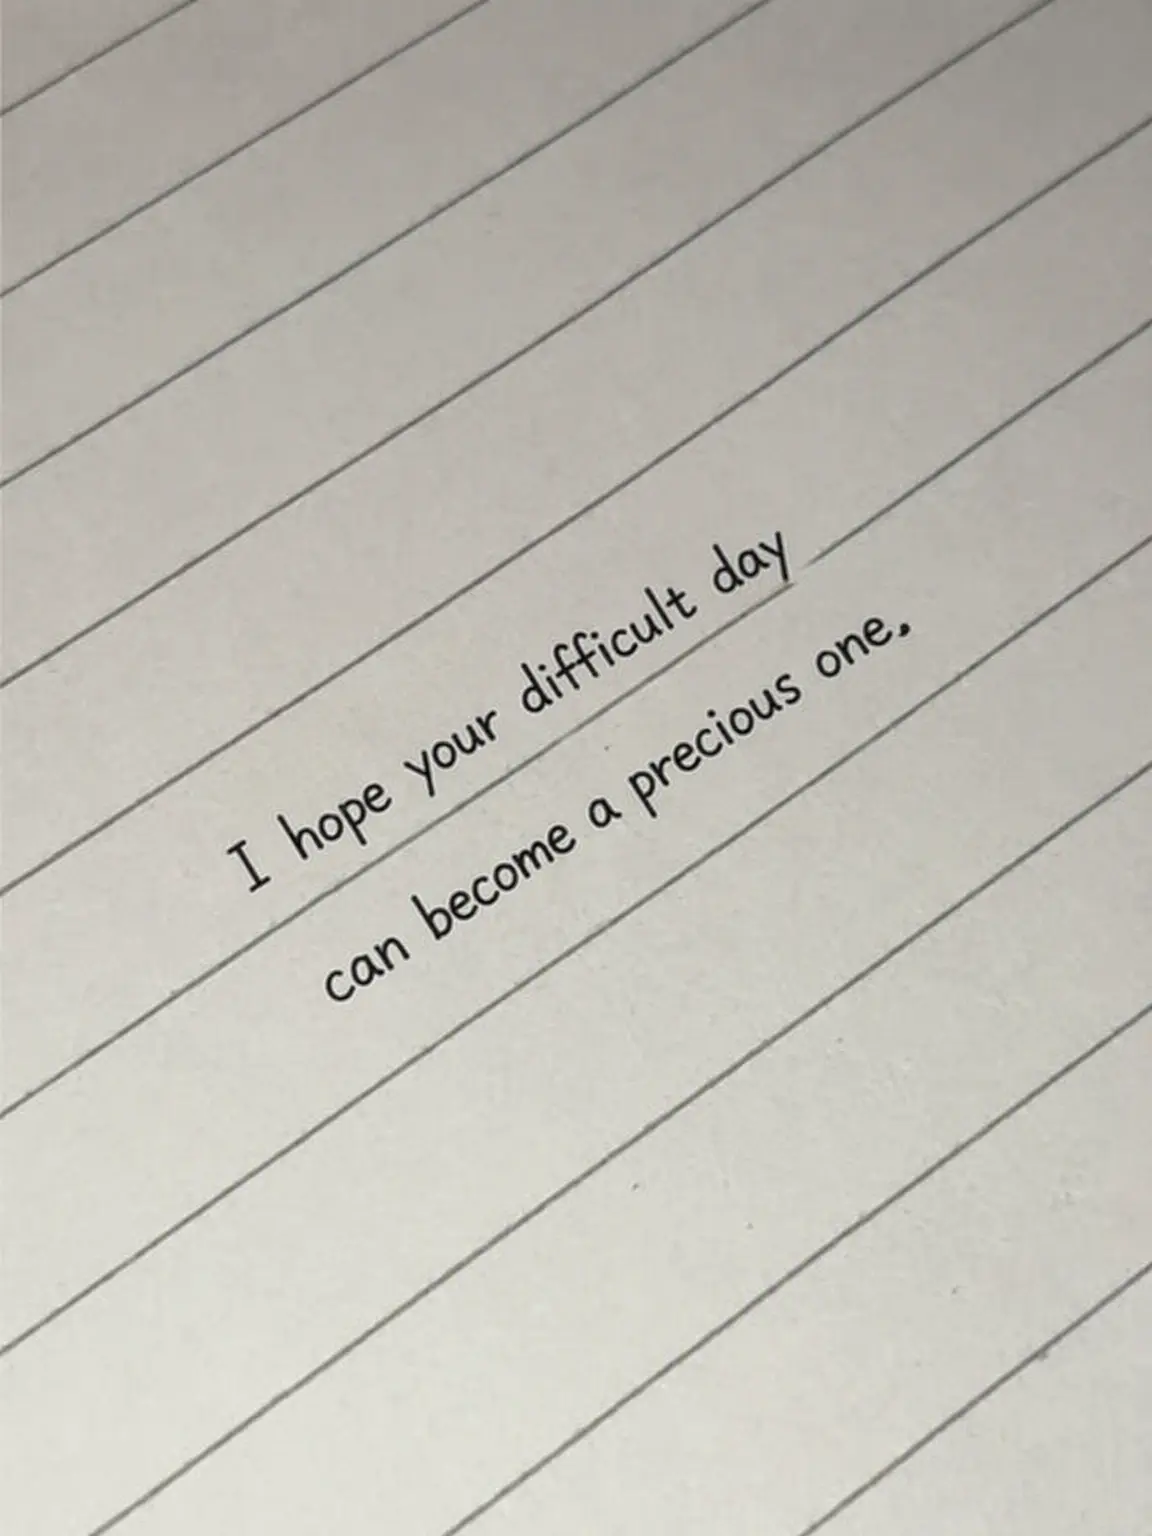 I hope your difficult day
can become a precious one.